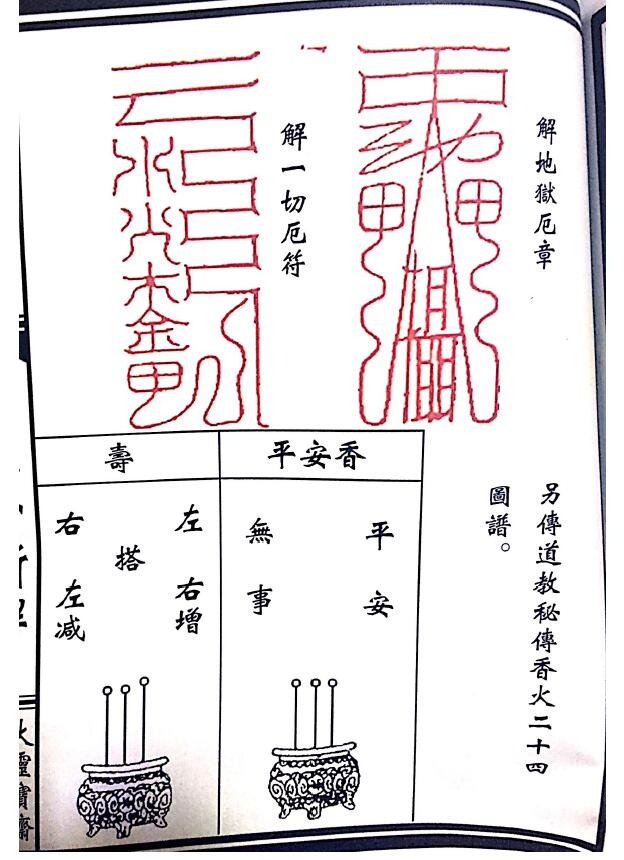 解地獄厄章
解一切厄符
另傳道教秘傳香火二十四
圖譜。
平安香
平安
無事
壽
左 右增
搭
右 左減